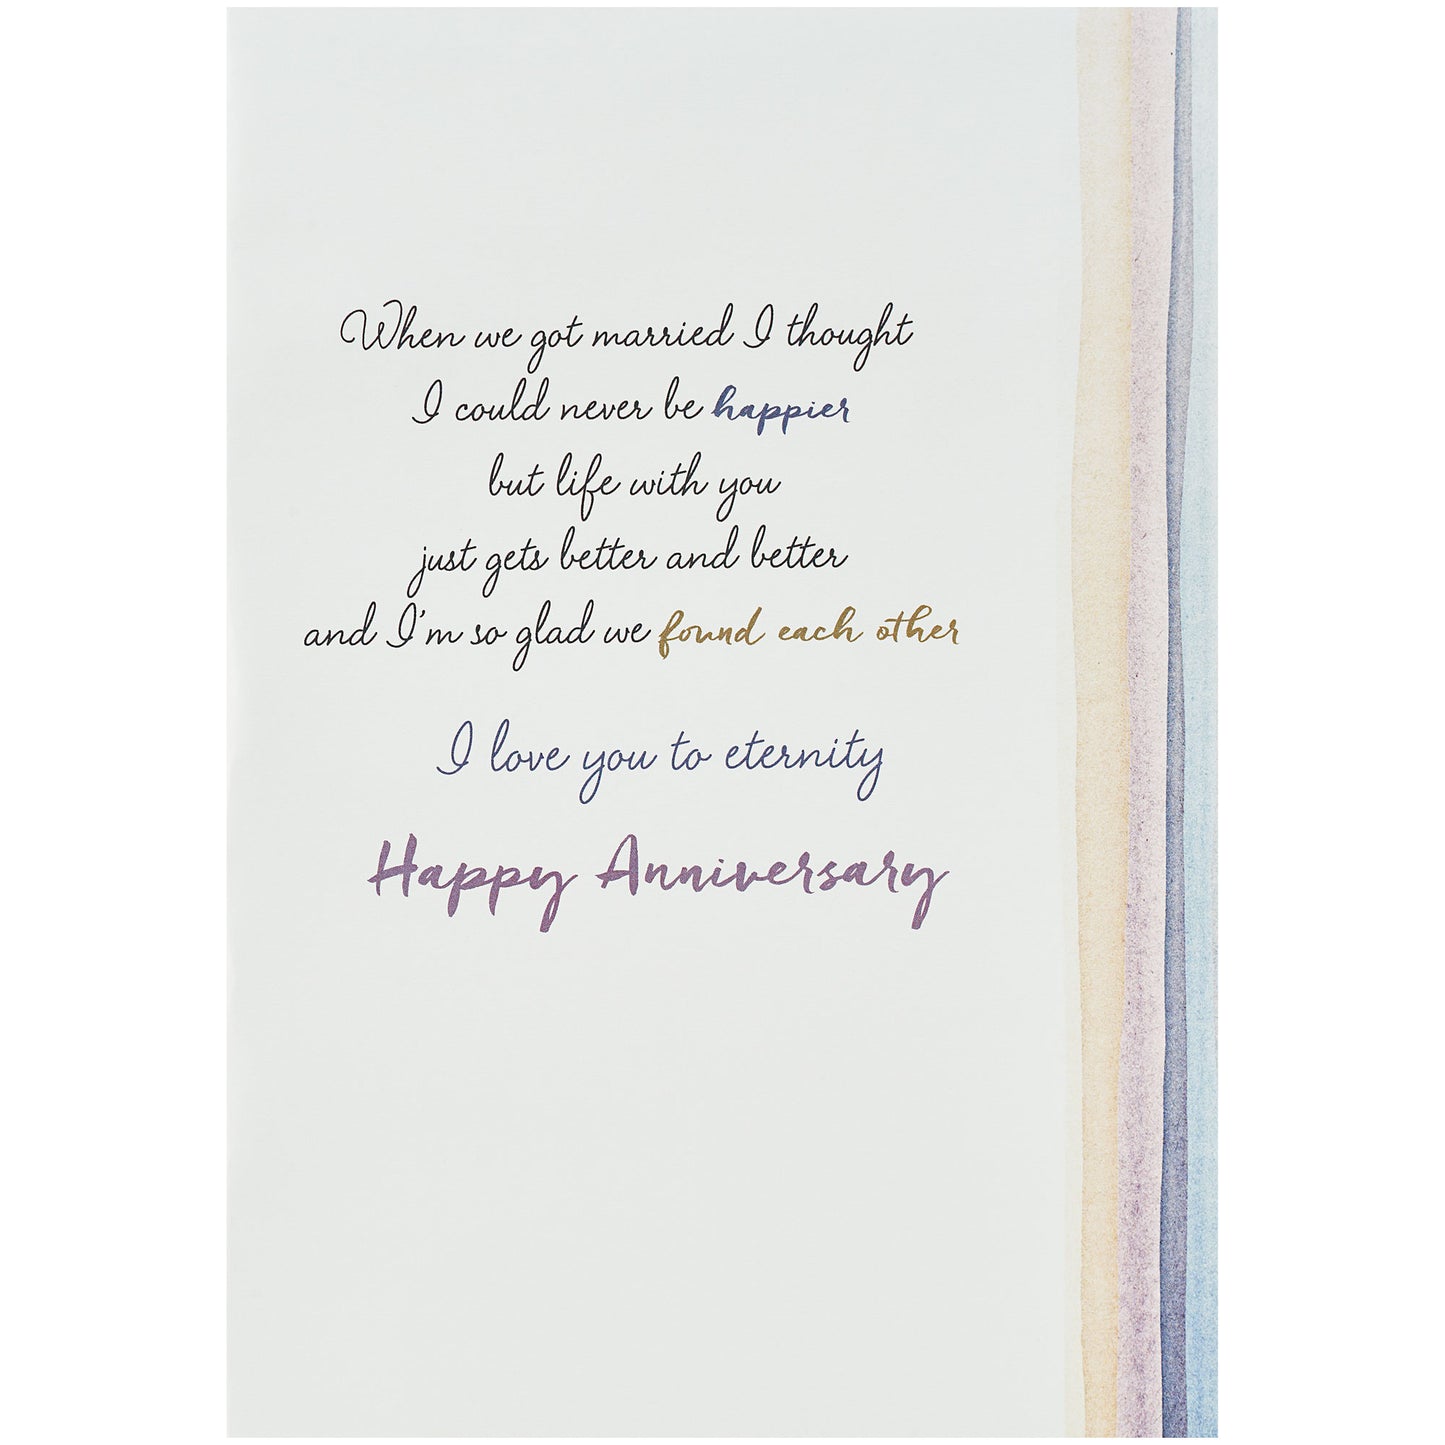 When we got married I thought
I could never be happier
but life with you
just gets better and better
and I'm so glad we found each other
I love you to eternity
Happy Anniversary